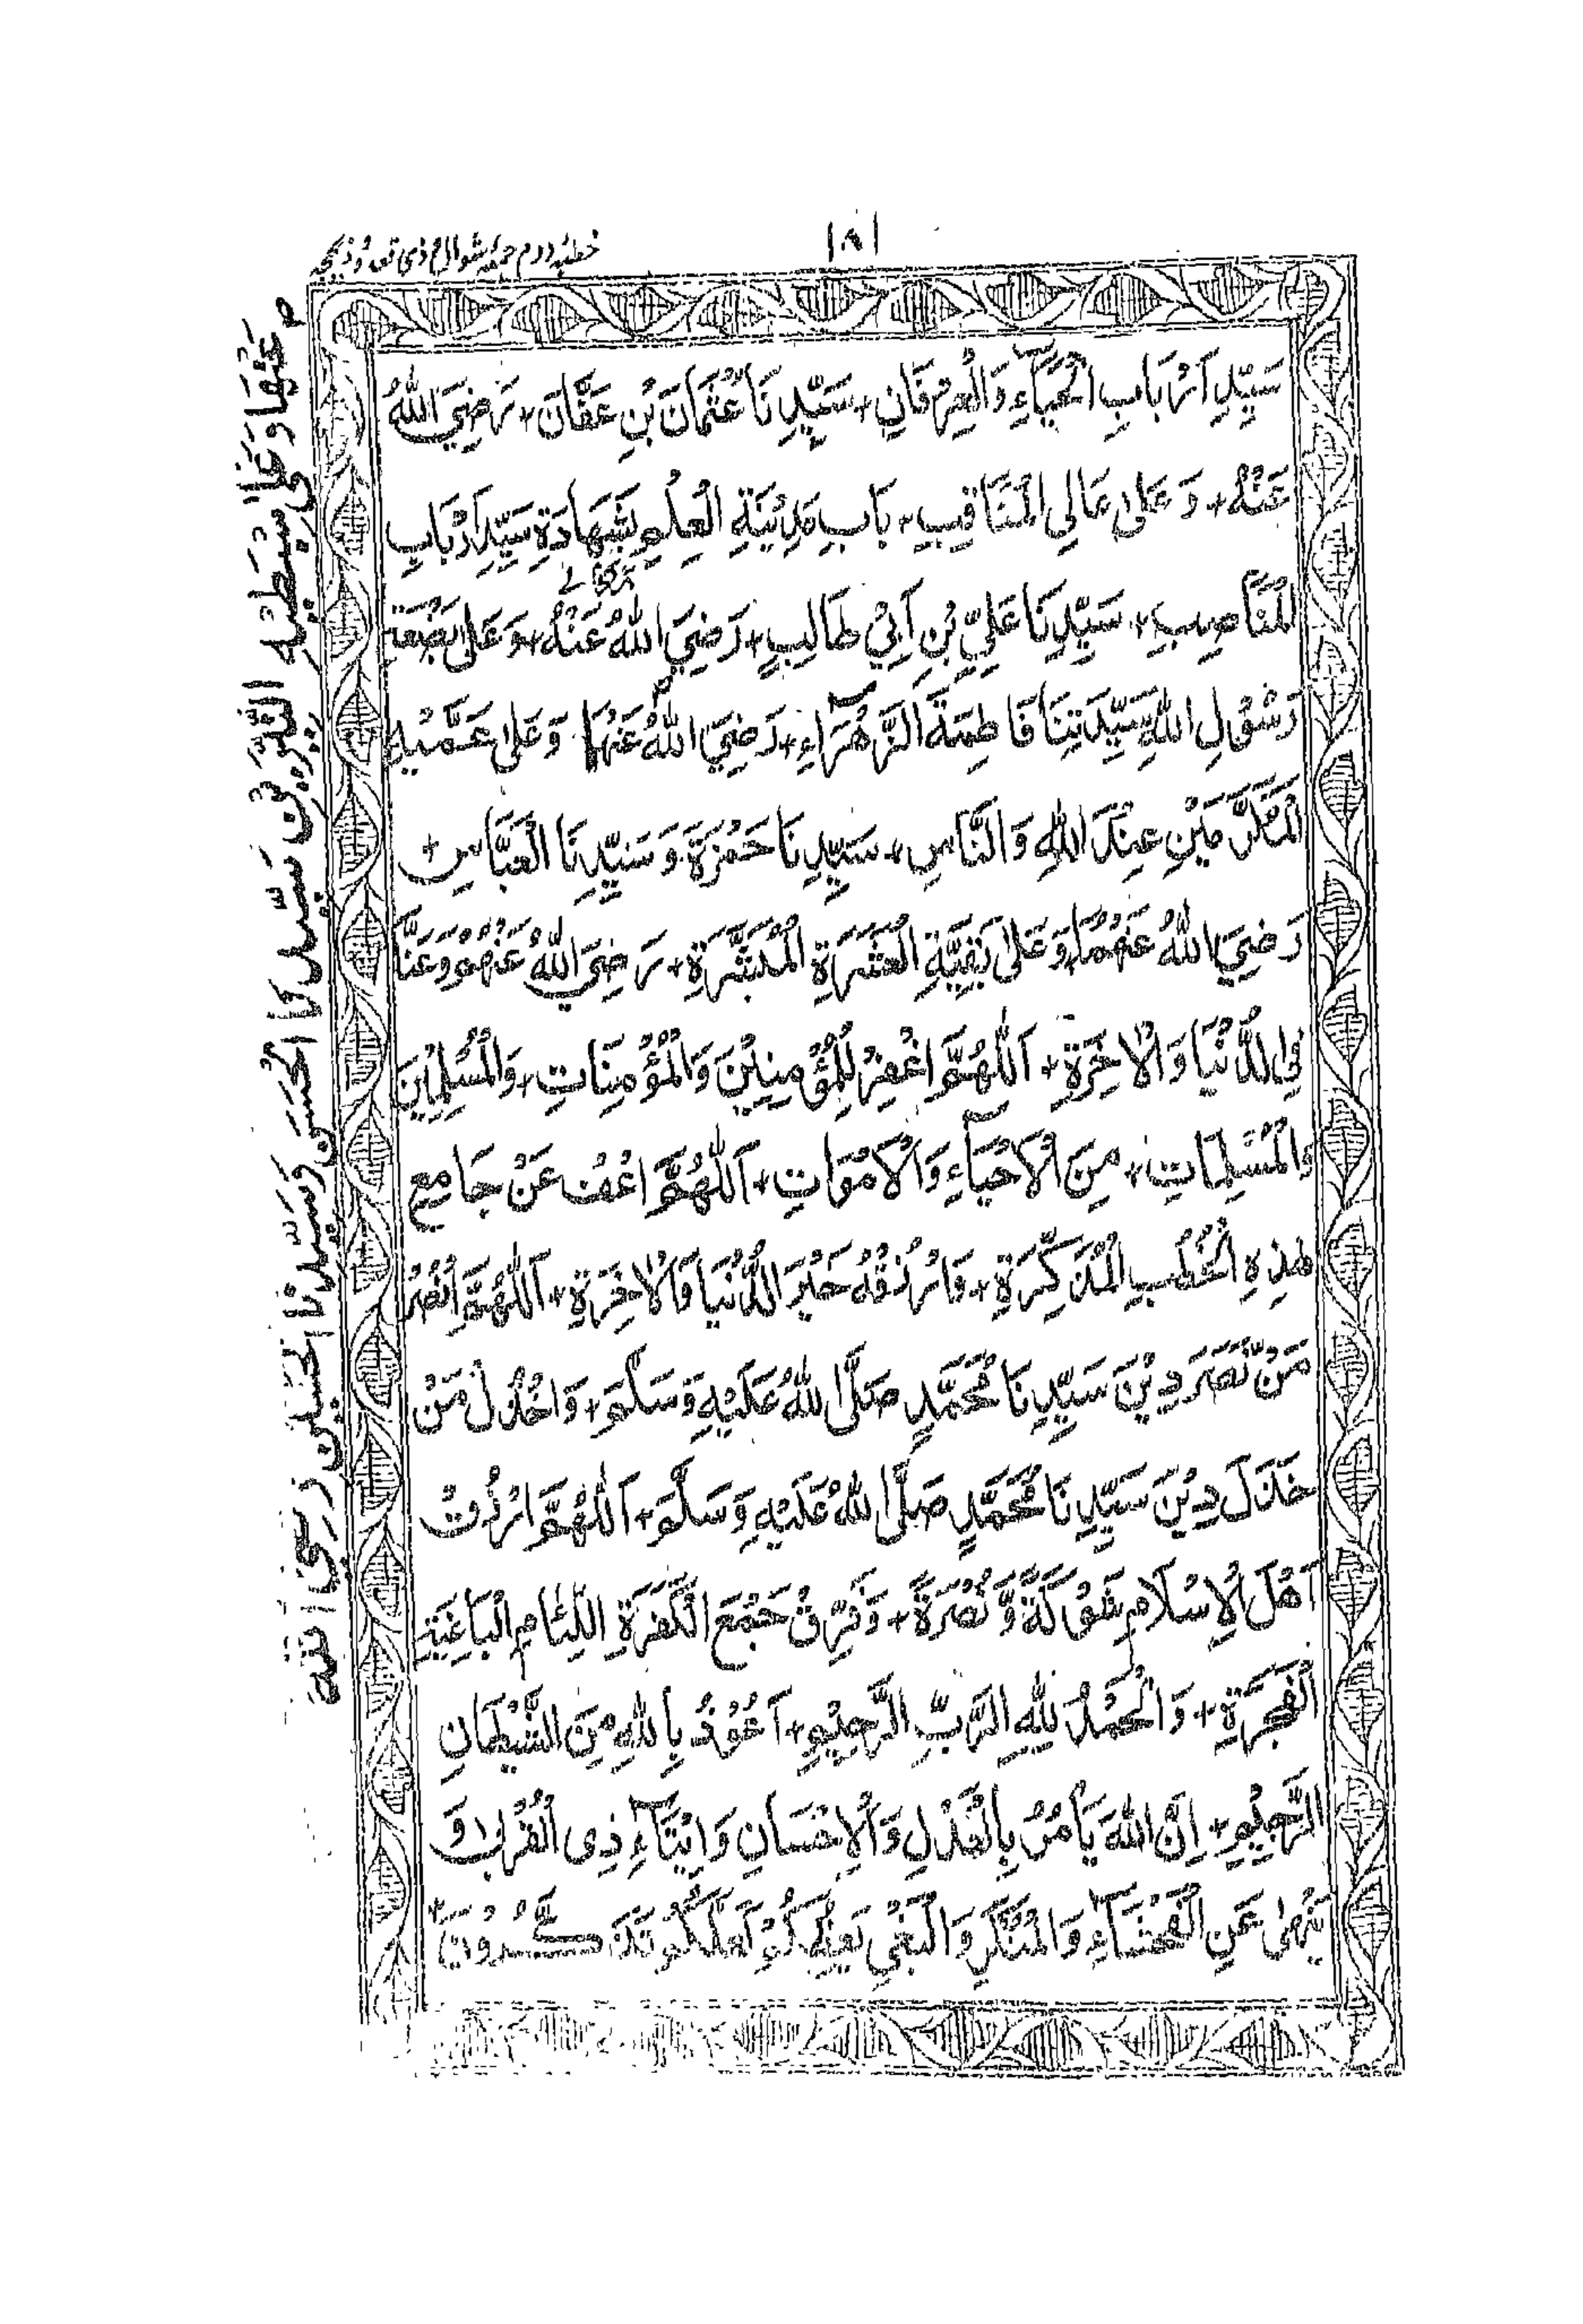 ١٨١
خطبۂ دوم جمعہ شوال و ذی قعدہ و ذیحجہ
سَيِّدِ اَرْبَابِ الْحَيَآءِ وَالْعِرْفَانِ + سَيِّدِنَا عُثْمَانَ بْنِ عَفَّانَ + رَضِيَ اللّٰهُ
عَنْهُ + وَعَلٰى عَالِي الْمَنَاقِبِ + بَابِ مَدِيْنَةِ الْعِلْمِ بِشَهَادَةِ سَيِّدِ اَرْبَابِ
الْمَنَاصِبِ + سَيِّدِنَا عَلِيِّ بْنِ اَبِيْ طَالِبٍ + رَضِيَ اللّٰهُ تَعَالٰى عَنْهُ + وَعَلٰى بَضْعَةِ
رَسُوْلِ اللّٰهِ سَيِّدَتِنَا فَاطِمَةَ الزَّهْرَآءِ + رَضِيَ اللّٰهُ عَنْهَا وَعَلٰى عَمَّيْهِ
الْمُكَرَّمَيْنِ عِنْدَ اللّٰهِ وَالنَّاسِ + سَيِّدِنَا حَمْزَةَ وَسَيِّدِنَا الْعَبَّاسِ +
رَضِيَ اللّٰهُ عَنْهُمَا وَعَلٰى بَقِيَّةِ الْعَشَرَةِ الْمُبَشَّرَةِ + رَضِيَ اللّٰهُ عَنْهُمْ وَعَنَّا
فِي الدُّنْيَا وَالْاٰخِرَةِ + اَللّٰهُمَّ اغْفِرْ لِلْمُؤْمِنِيْنَ وَالْمُؤْمِنَاتِ + وَالْمُسْلِمِيْنَ
وَالْمُسْلِمَاتِ + مِنَ الْاَحْيَآءِ وَالْاَمْوَاتِ + اَللّٰهُمَّ اعْفُ عَنْ جَامِعِ
هٰذِهِ الْخُطَبِ الْمُذَكِّرَةِ + وَارْزُقْهُ خَيْرَ الدُّنْيَا وَالْاٰخِرَةِ + اَللّٰهُمَّ انْصُرْ
مَنْ نَّصَرَ دِيْنَ سَيِّدِنَا مُحَمَّدٍ صَلَّى اللّٰهُ عَلَيْهِ وَسَلَّمَ + وَاخْذُلْ مَنْ
خَذَلَ دِيْنَ سَيِّدِنَا مُحَمَّدٍ صَلَّى اللّٰهُ عَلَيْهِ وَسَلَّمَ + اَللّٰهُمَّ ارْزُقْ
اَهْلَ الْاِسْلَامِ شَوْكَةً وَّنُصْرَةً + وَفَرِّقْ جَمْعَ الْكَفَرَةِ اللِّئَامِ الْبَاغِيَةِ
الْفَجَرَةِ + وَالْحَمْدُ لِلّٰهِ الرَّبِّ الرَّحِيْمِ + اَعُوْذُ بِاللّٰهِ مِنَ الشَّيْطَانِ
الرَّجِيْمِ + اِنَّ اللّٰهَ يَأْمُرُ بِالْعَدْلِ وَالْاِحْسَانِ وَاِيْتَآءِ ذِى الْقُرْبٰى وَ
يَنْهٰى عَنِ الْفَحْشَآءِ وَالْمُنْكَرِ وَالْبَغْيِ يَعِظُكُمْ لَعَلَّكُمْ تَذَكَّرُوْنَ
عَنْهَا وَعَلٰى سِبْطَيْهِ النَّيِّرَيْنِ سَيِّدِنَا الْحَسَنِ وَسَيِّدِنَا الْحُسَيْنِ رَضِيَ اللّٰهُ